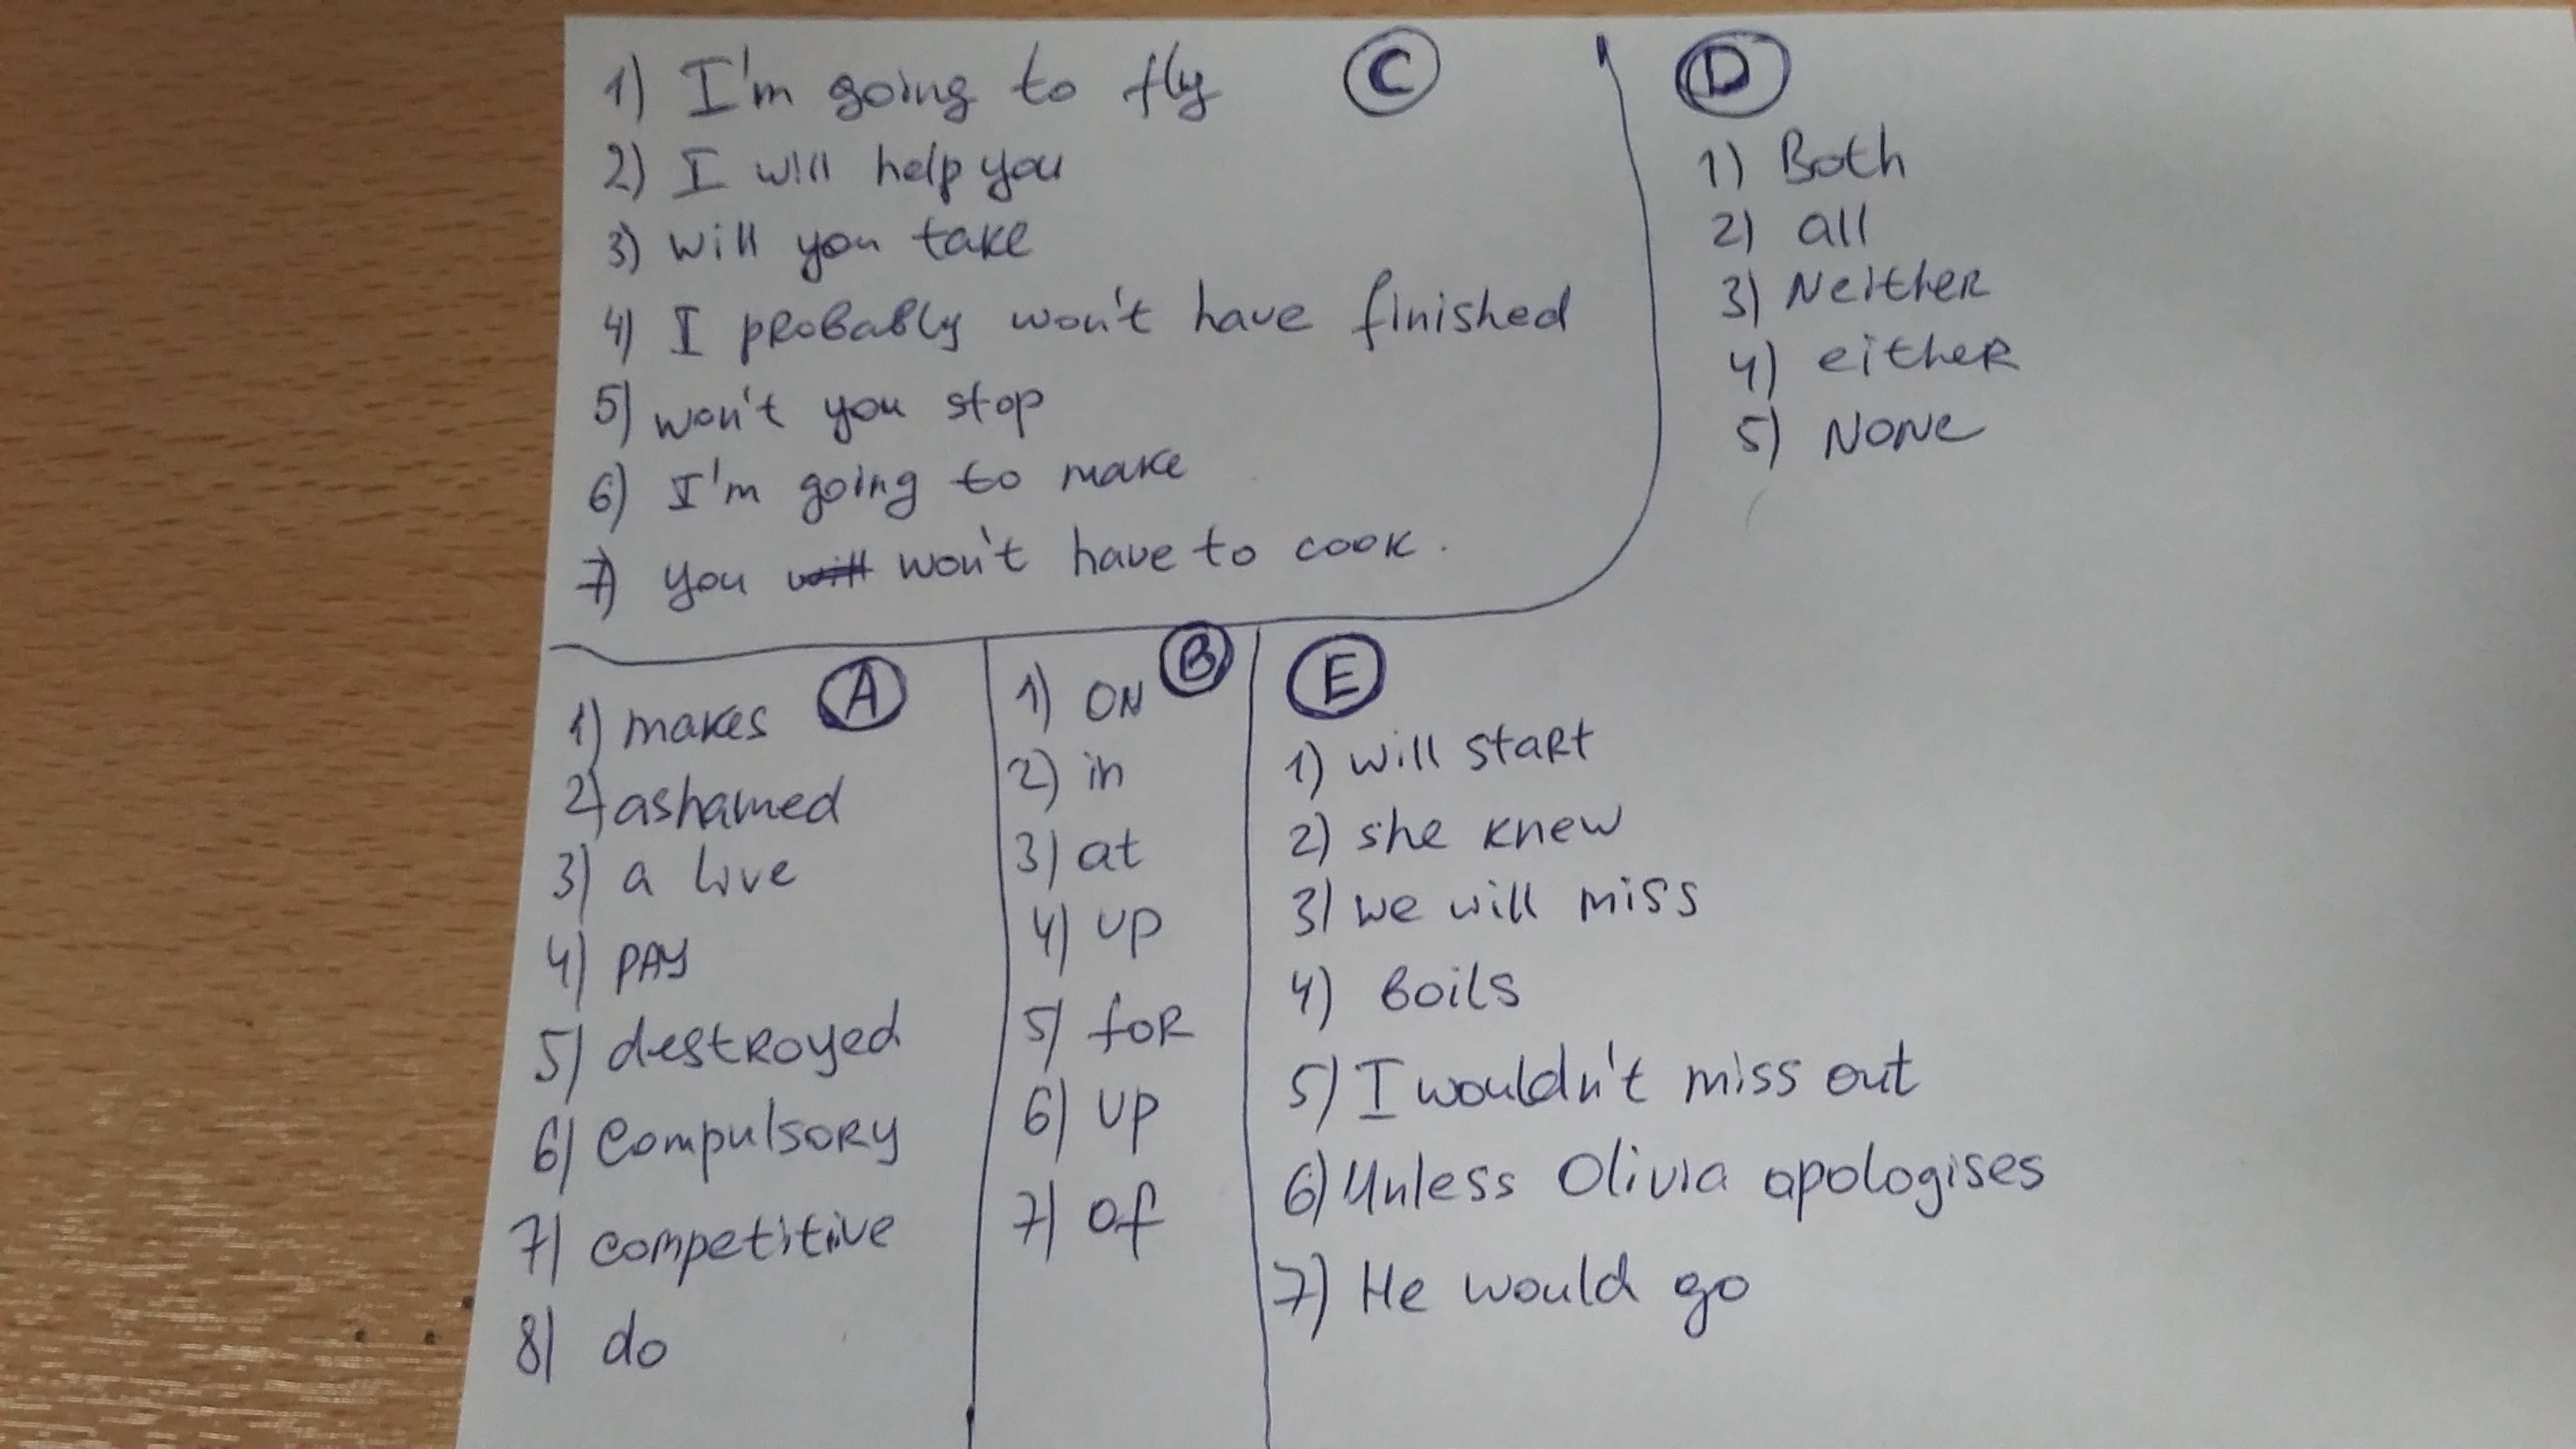 C
1) I'm going to fly
2) I will help you
3) will you take
4) I probably won't have finished
5) won't you stop
6) I'm going to make
7) you will won't have to cook.
D
1) Both
2) all
3) Neither
4) either
5) None
A
1) makes
2) ashamed
3) a live
4) pay
5) destroyed
6) Compulsory
7) competitive
8) do
B
1) on
2) in
3) at
4) up
5) for
6) up
7) of
E
1) will start
2) she knew
3) we will miss
4) boils
5) I wouldn't miss out
6) Unless Olivia apologises
7) He would go